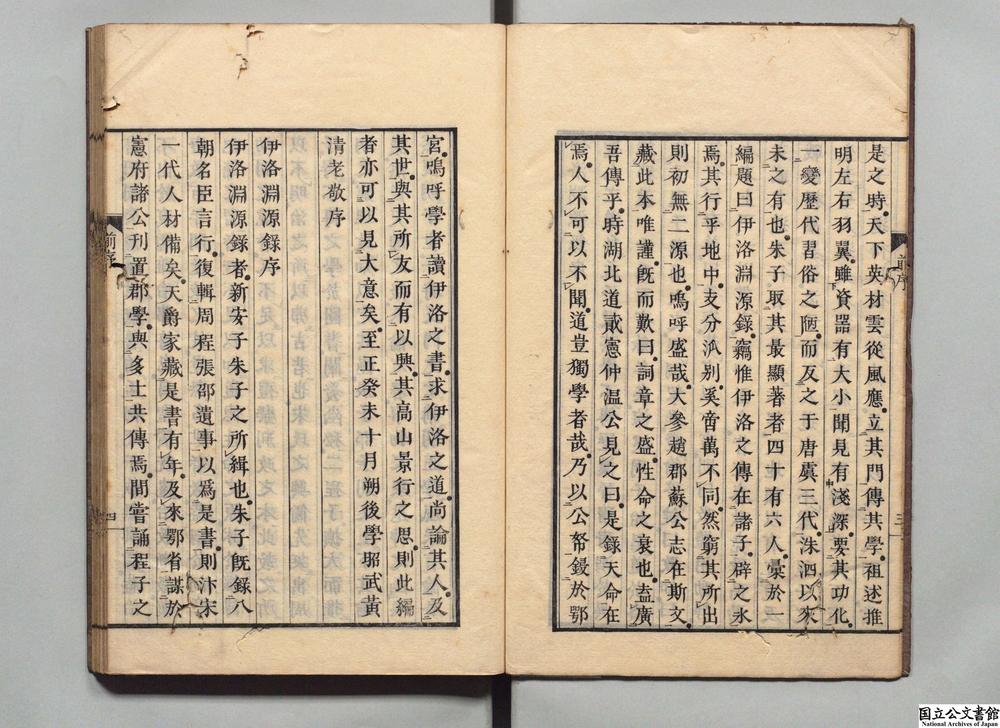 是之時天下英材雲從風應立其門傳其學祖述推
明左右羽翼雖資器有大小聞見有淺深要其功化
一變歷代習俗之陋而反之于唐虞三代洙泗以來
未之有也朱子取其最顯著者四十有六人彙於一
編題曰伊洛淵源錄竊惟伊洛之傳在諸子辟之水
焉其行乎地中支分派别奚啻萬不同然窮其所出
則初無二源也嗚呼盛哉大參趙郡蘇公志在斯文
藏此本唯謹旣而歎曰詞章之盛性命之衰也盍廣
吾傳乎時湖北道貳憲仲温公見之曰是錄天命在
焉人不可以不聞道豈獨學者哉乃以公帑鋟於鄂
前序
三
宮嗚呼學者讀伊洛之書求伊洛之道尚論其人及
其世與其所友而有以興其高山景行之思則此編
者亦可以見大意矣至正癸未十月朔後學昭武黃
清老敬序
伊洛淵源錄序
伊洛淵源錄者新安子朱子之所緝也朱子旣錄八
朝名臣言行復輯周程張邵遺事以爲是書則汴宋
一代人材備矣天爵家藏是書有年及來鄂省謀於
憲府諸公刊置郡學與多士共傳焉間嘗誦程子之
前序
四
国立公文書館
National Archives of Japan